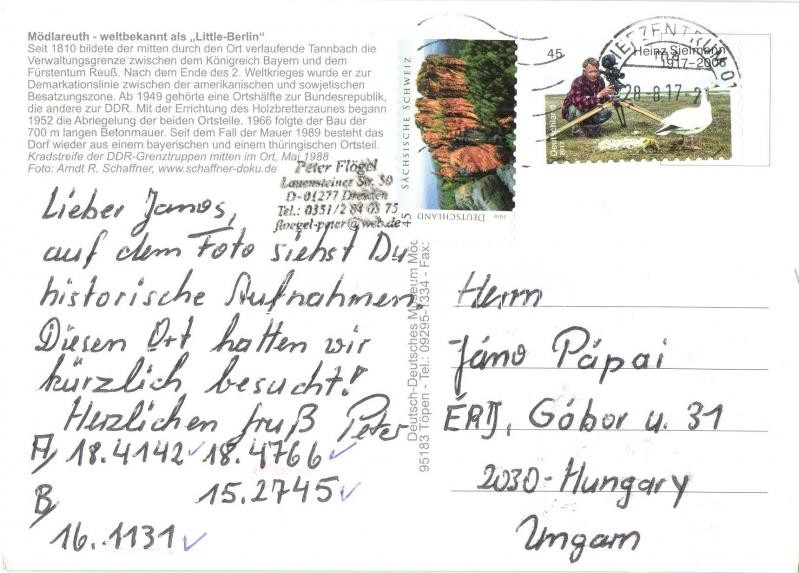 Mödlareuth - weltbekannt als „Little-Berlin"
Seit 1810 bildete der mitten durch den Ort verlaufende Tannbach die
Verwaltungsgrenze zwischen dem Königreich Bayern und dem
Fürstentum Reuß. Nach dem Ende des 2. Weltkrieges wurde er zur
Demarkationslinie zwischen der amerikanischen und sowjetischen
Besatzungszone. Ab 1949 gehörte eine Ortshälfte zur Bundesrepublik,
die andere zur DDR. Mit der Errichtung des Holzbretterzaunes begann
1952 die Abriegelung der beiden Ortsteile. 1966 folgte der Bau der
700 m langen Betonmauer. Seit dem Fall der Mauer 1989 besteht das
Dorf wieder aus einem bayerischen und einem thüringischen Ortsteil.
Kradstreife der DDR-Grenztruppen mitten im Ort, Mai 1988
Foto: Arndt R. Schaffner, www.schaffner-doku.de
Peter Flögel
Lauensteiner Str. 30
D-01277 Dresden
Tel.: 0351/2 84 03 75
floegel-peter@web.de
Lieber Janos,
auf dem Foto siehst Du
historische Aufnahmen.
Diesen Ort hatten wir
kürzlich besucht!
Herzlichen Gruß Peter
A) 18.4142 18.4766
B) 15.2745
16.1131
SÄCHSISCHE SCHWEIZ
45
DEUTSCHLAND
2016
45
Heinz Sielmann
1917-2006
Deutschland
28-8.17-21
Deutsch-Deutsches Museum
95183 Töpen - Tel.: 09295-1334 - Fax:
Herrn
Jáno Pápai
ÉRD, Gábor u. 31
2030-Hungary
Ungarn